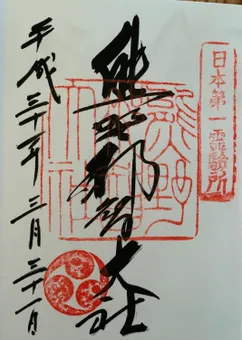 日本第一霊験所
熊野那智大社
平成三十一年三月三十一日